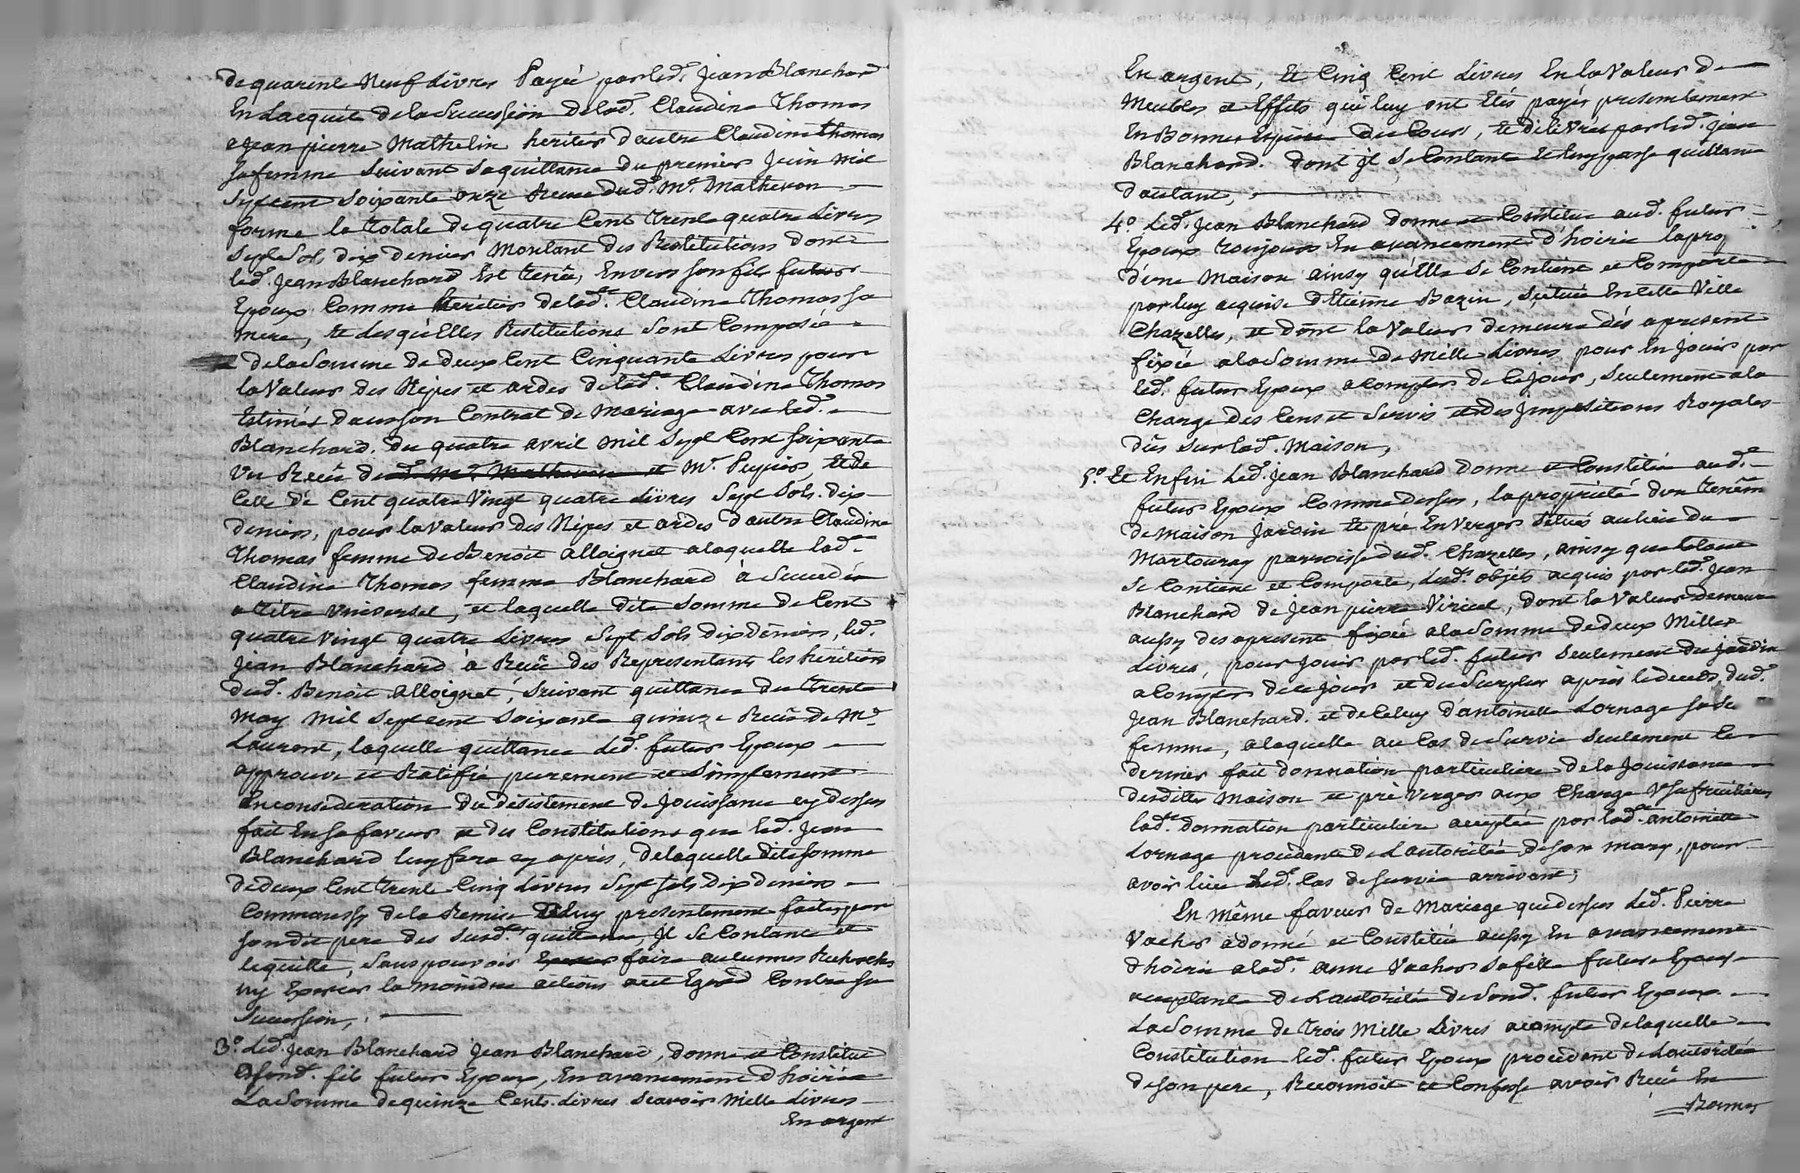 de quarente Neuf Livres Payée par led. Jean Blanchard
En Lacquit de la Succession de lad. Claudine Thomas
a Jean pierre Mathelin heritier d'autre Claudine Thomas
sa femme Suivant Sa quittance du premier Juin mil
Sept cent Soixante onze Receue dud. Mr. Mathevon
forme la totale de quatre Cent Trente quatre Livres
Sept Sols dix deniers Montant des Restitutions dont
led. Jean Blanchard Est Tenû, Envers son fils futur
Epoux Comme heritier de lad. Claudine Thomas sa
mere, et lesquelles Restitutions Sont Composée
de la Somme de deux Cent Cinquante Livres pour
la Valeur des Nipes et ardes de lad. Claudine Thomas
Estimés dans son Contrat de Mariage avec led.
Blanchard. du quatre avril mil Sept Cent soixante
Un Receû de Mr. Peyrier, et de
Celle de Cent quatre Vingt quatre Livres Sept Sols dix
deniers, pour la Valeur des Nipes et ardes d'autre Claudine
Thomas femme de Benoit alloignet a laquelle lad.
Claudine Thomas femme Blanchard à Succedée
a titre universel, et laquelle dite Somme de Cent
quatre vingt quatre Livres Sept Sols Dix Déniers, led.
Jean Blanchard à Receû des Representants les heritiers
dud. Benoit alloignet, Suivant quittance du trente
May Mil Sept cent Soixante quinze Receû de Mr.
Laurent, laquelle quittance led. futur Epoux
approuve et Ratifie purement et Simplement
En consideration du désistement de Jouissance cy dessus
fait En sa faveur et des Constitutions que led. Jean
Blanchard luy fera cy aprés, de laquelle dite somme
de deux Cent Trente Cinq Livres Sept Sols Dix deniers
Comme aussy de la Remise a luy presentement faite par
son dit pere des Susd. quittances, Jl Se Contante et
le quitte, Sans pouvoir faire aucunnes Recherches
ny Exercer la moindre actions a cet Egard Contre sa
Succession,
3º. Led. Jean Blanchard Jean Blanchard, donne et Constitue
a sond. fils futur Epoux, En avancement d'hoirie
La Somme de quinze Cents Livres Scavoir Mille Livres
En argent
En argent, Et Cinq Cent Livres En la Valeur de
Meubles et Effets qui luy ont Etés payés presentement
En Bonnes Espèces du Cours, et delivrés par led. Jean
Blanchard. dont Jl Se Contante et luy passe quittance
d'autant,
4º. Led. Jean Blanchard donne et Constitue aud. futur
Epoux toujours En avancement d'hoirie la prop
d'une Maison ainsy qu'Elle Se Contient et Comporte
par luy acquise d'Etienne Bazin, Scituée En Cette Ville
Chazelles, et dont la Valeur demeure dés apresent
fixée a la Somme de Mille Livres pour En Jouir par
led. futur Epoux a Compter de Ce Jour, Seulement a la
Charge des Cens et Servis et des Jmpositions Royales
dûs sur lad. Maison,
5º. Et Enfin led. Jean Blanchard donne et Constitue aud.
futur Epoux Comme dessus, la propriété d'un tenêm
de Maison Jardin et pré En Verger Situés au lieu du
Martouray parroisse dud. Chazelles, ainsy que le tout
Se Contient et Comporte, lesd. objets acquis par led. Jean
Blanchard de Jean pierre Viricel, dont la Valeur demeure
aussy des apresent fixée a la Somme de deux Mille
Livres, pour Jouir par led. futur Seulement du Jardin
a Compter de ce Jour et du Surplus aprés le decés, dud.
Jean Blanchard. et de Celuy d'antoinette Lornage sa Se
femme, a laquelle au Cas de Survie Seulement Ce
dernier fait donnation particuliere de la Jouissance
desdittes Maison et pré Verger aux Charge Usufruitieres
lad. donnation particuliere acceptée par lad. antoinette
Lornage procedente de L'autorité de son mary, pour
avoir lieu led. Cas de Survie arrivant;
En même faveur de Mariage que dessus led. Pierre
Vacher a donné et Constitué aussy En avancement
d'hoirie a lad. anne Vacher Sa fille future Epouse
acceptante de L'autorité de Sond. futur Epoux
La Somme de trois Mille Livres a compte de laquelle
Constitution led. futur Epoux procedent de L'autorité
de Son pere, Reconnoit et Confesse avoir Receû En
Bonnes